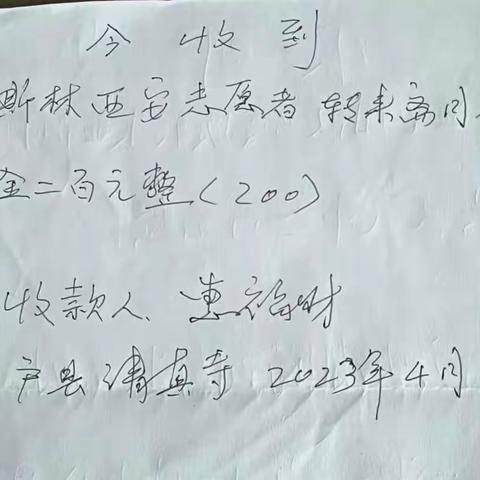 今收到
斯林西安志愿者转来斋月
金二百元整(200)
收款人、惠福财
户县清真寺 2023年4月